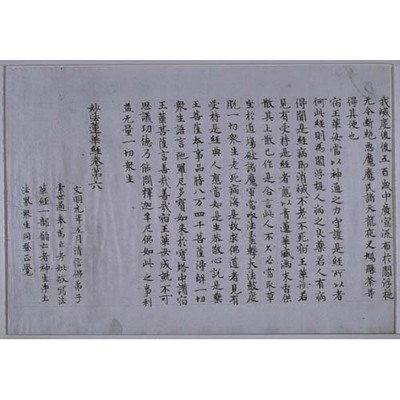 我滅度後後五百歲中廣宣流布於閻浮提
无令斷絕惡魔魔民諸天龍夜叉鳩槃荼等
得其便也
宿王華汝當以神通之力守護是經所以者
何此經則為閻浮提人病之良藥若人有病
得聞是經病即消滅不老不死宿王華汝若
見有受持是經者應以青蓮華盛滿末香供
散其上散已作是念言此人不久必當取草
坐於道場破諸魔軍當吹法螺擊大法鼓度
脫一切衆生老病死海是故求佛道者見有
受持是經典人應當如是生恭敬心說是藥
王菩薩本事品時八万四千菩薩得解一切
衆生語言陀羅尼多寶如來於寶塔中讚宿
王華菩薩言善哉善哉宿王華汝成就不可
思議功德乃能問釋迦牟尼佛如此之事利
益无量一切衆生
妙法蓮華經卷第六
文明元年五月清信佛弟子
索世通奉為亡考妣敬寫法
華經一部願亡者神生淨土
法界衆生同登正覺